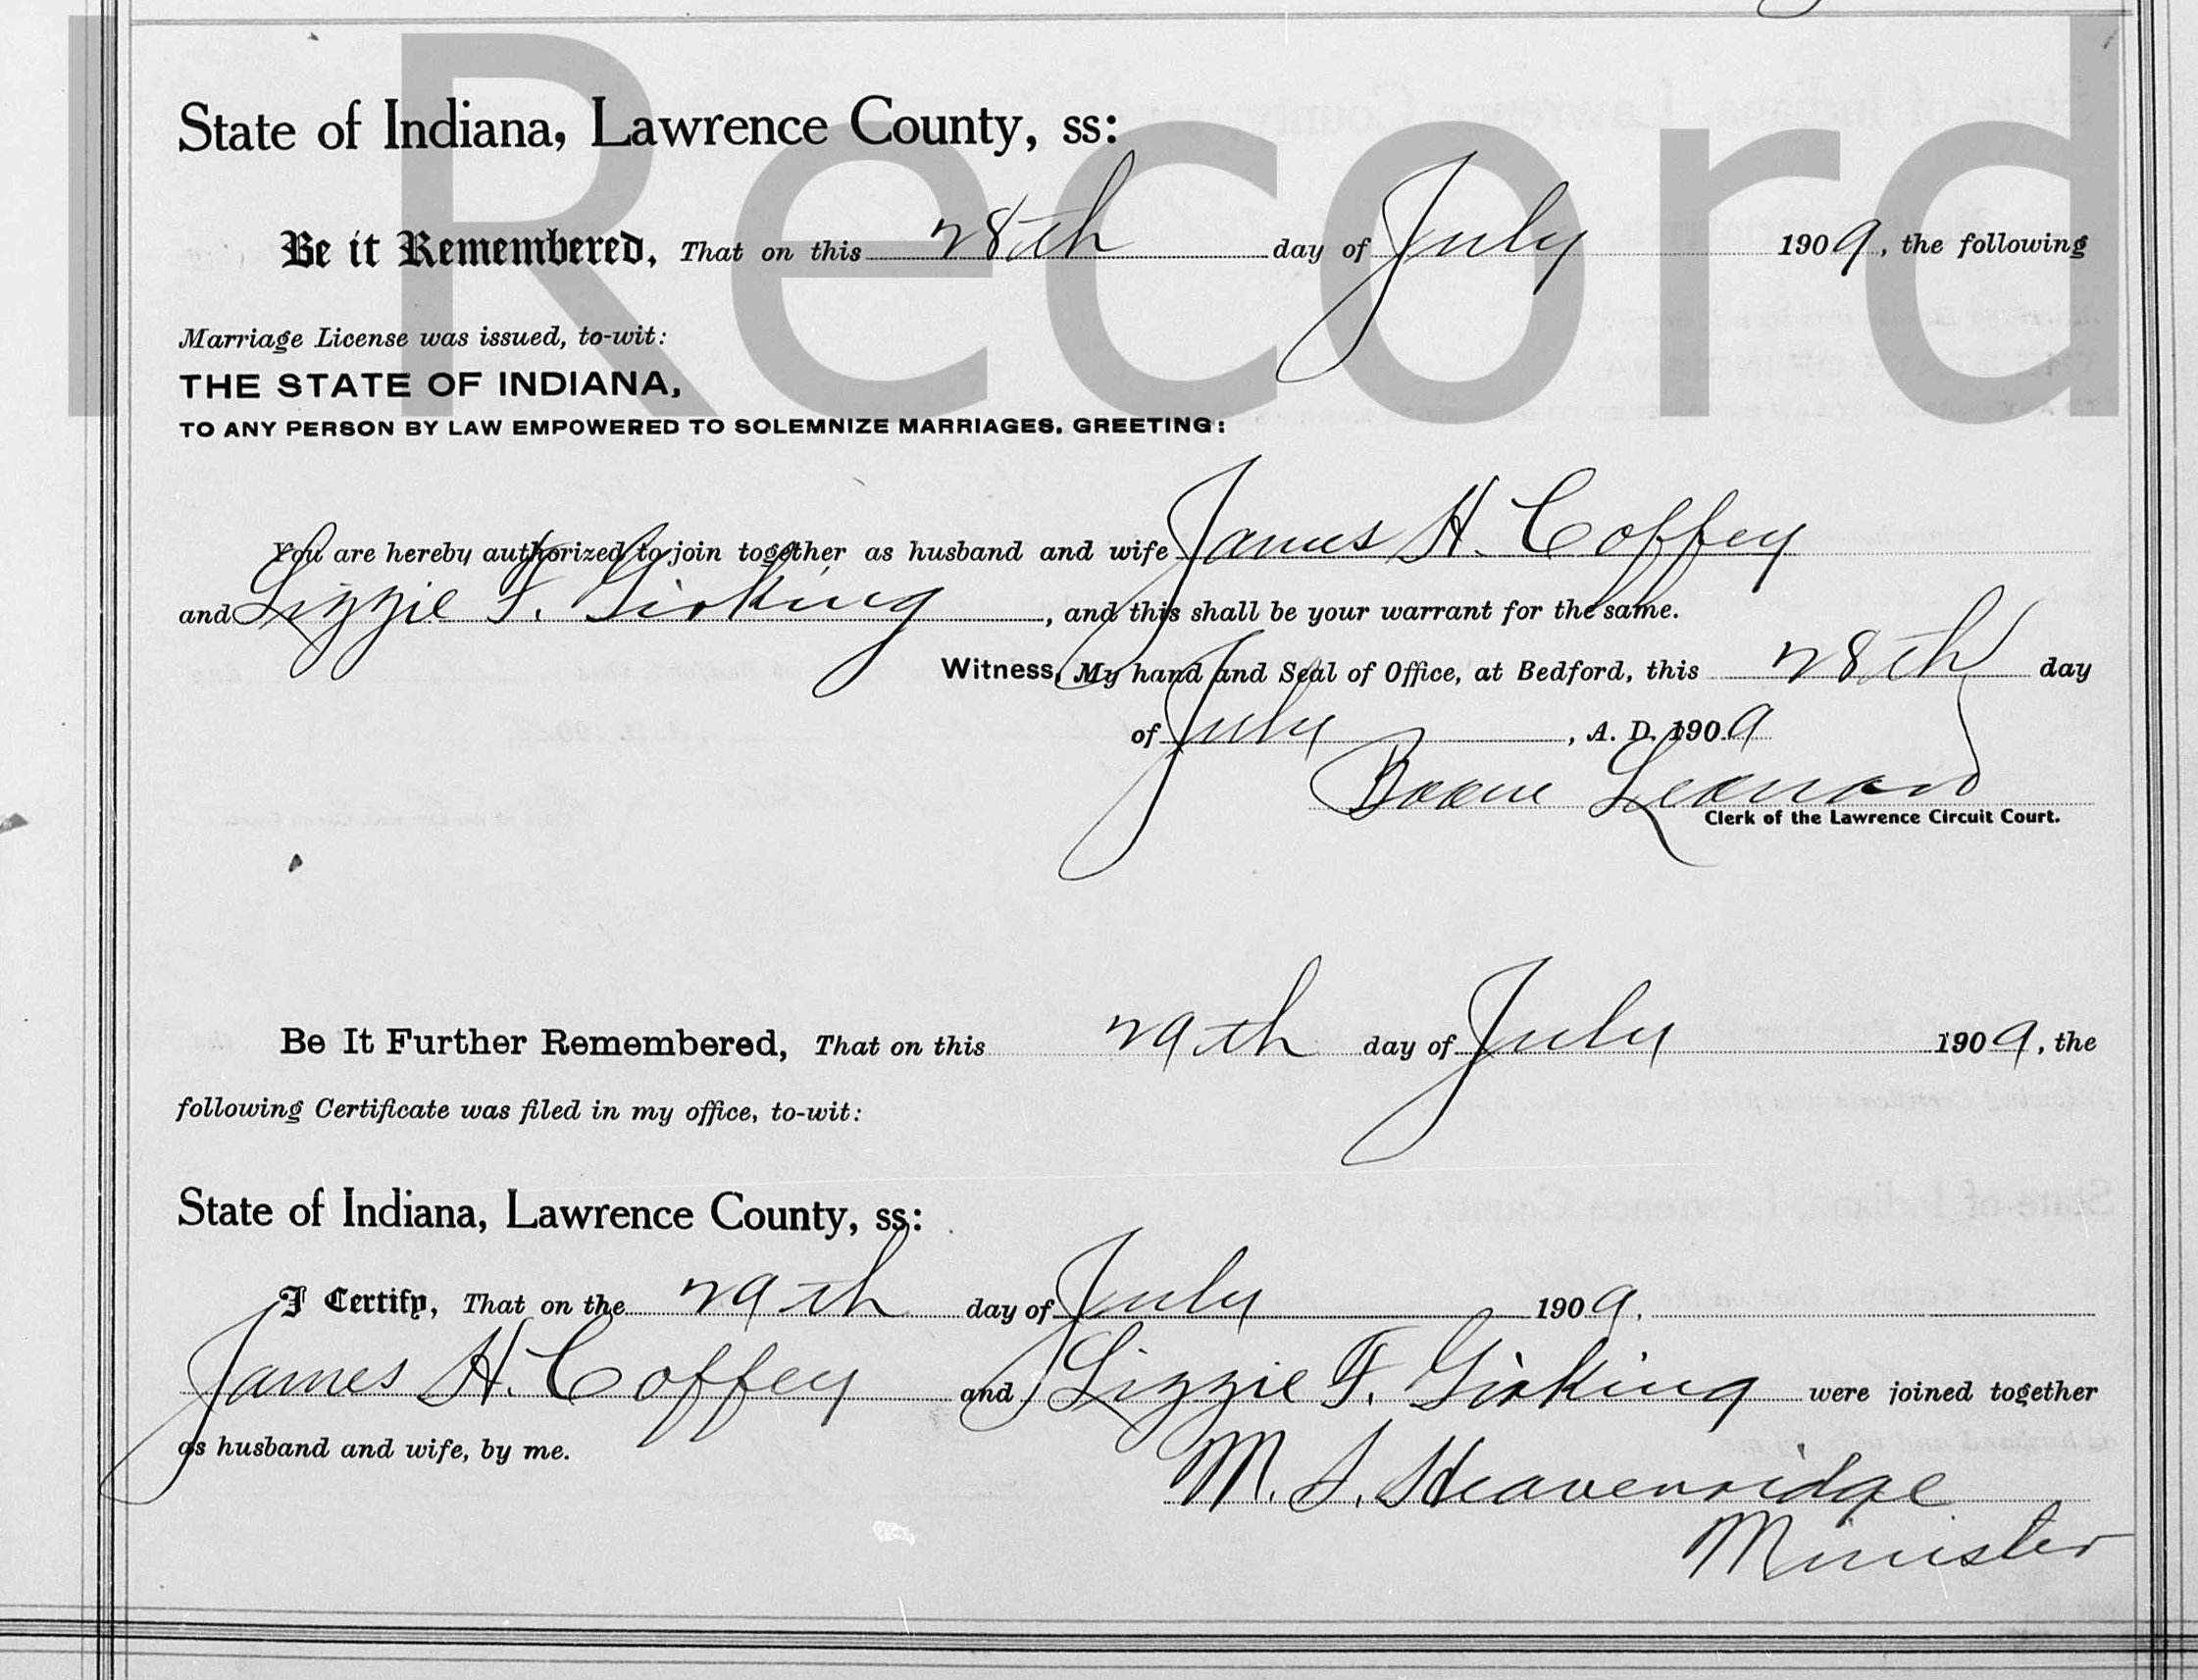 Record
State of Indiana, Lawrence County, ss:
Be it Remembered, That on this 28th day of July 1909, the following
Marriage License was issued, to-wit:
THE STATE OF INDIANA,
TO ANY PERSON BY LAW EMPOWERED TO SOLEMNIZE MARRIAGES. GREETING:
You are hereby authorized to join together as husband and wife James H. Coffey
and Lizzie F. Girking, and this shall be your warrant for the same.
Witness, My hand and Seal of Office, at Bedford, this 28th day
of July, A. D. 1909
Boone Leonard
Clerk of the Lawrence Circuit Court.
Be It Further Remembered, That on this 29th day of July 1909, the
following Certificate was filed in my office, to-wit:
State of Indiana, Lawrence County, ss:
I Certify, That on the 29th day of July 1909.
James H. Coffey and Lizzie F. Girking were joined together
as husband and wife, by me.
M. S. Heavenridge
Minister